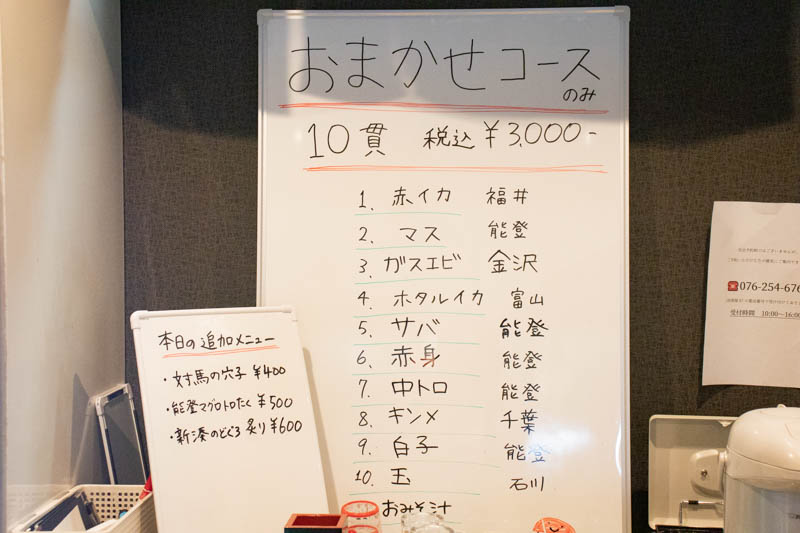 おまかせコース
のみ
10貫 税込 ¥3,000-
1. 赤イカ 福井
2. マス 能登
3. ガスエビ 金沢
4. ホタルイカ 富山
5. サバ 能登
6. 赤身 能登
7. 中トロ 能登
8. キンメ 千葉
9. 白子 能登
10. 玉 石川
おみそ汁
本日の追加メニュー
・対馬の穴子 ¥400
・能登マグロトロたく ¥500
・新湊のどぐろ 炙り ¥600
☎076-254-676
受付時間 10:00～16:00